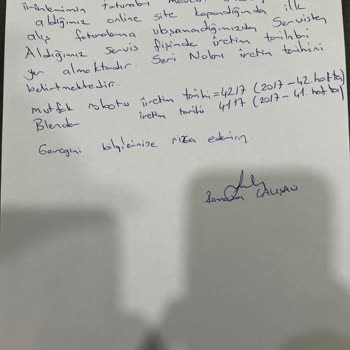 ürünlerimin faturası
aldığımız online site kapandığında ilk
alış faturasına ulaşamadığımızda Servisten
Aldığımız Servis fişinde üretim tarihi
yer almaktadır Seri Nolar üretim tarihini
belirtmektedir.
mutfak robotu üretim tarihi = 4217 (2017 - 42. hafta)
Blender üretim tarihi 4117 (2017 - 41. hafta)
Gereğini bilgilerinize rica ederim